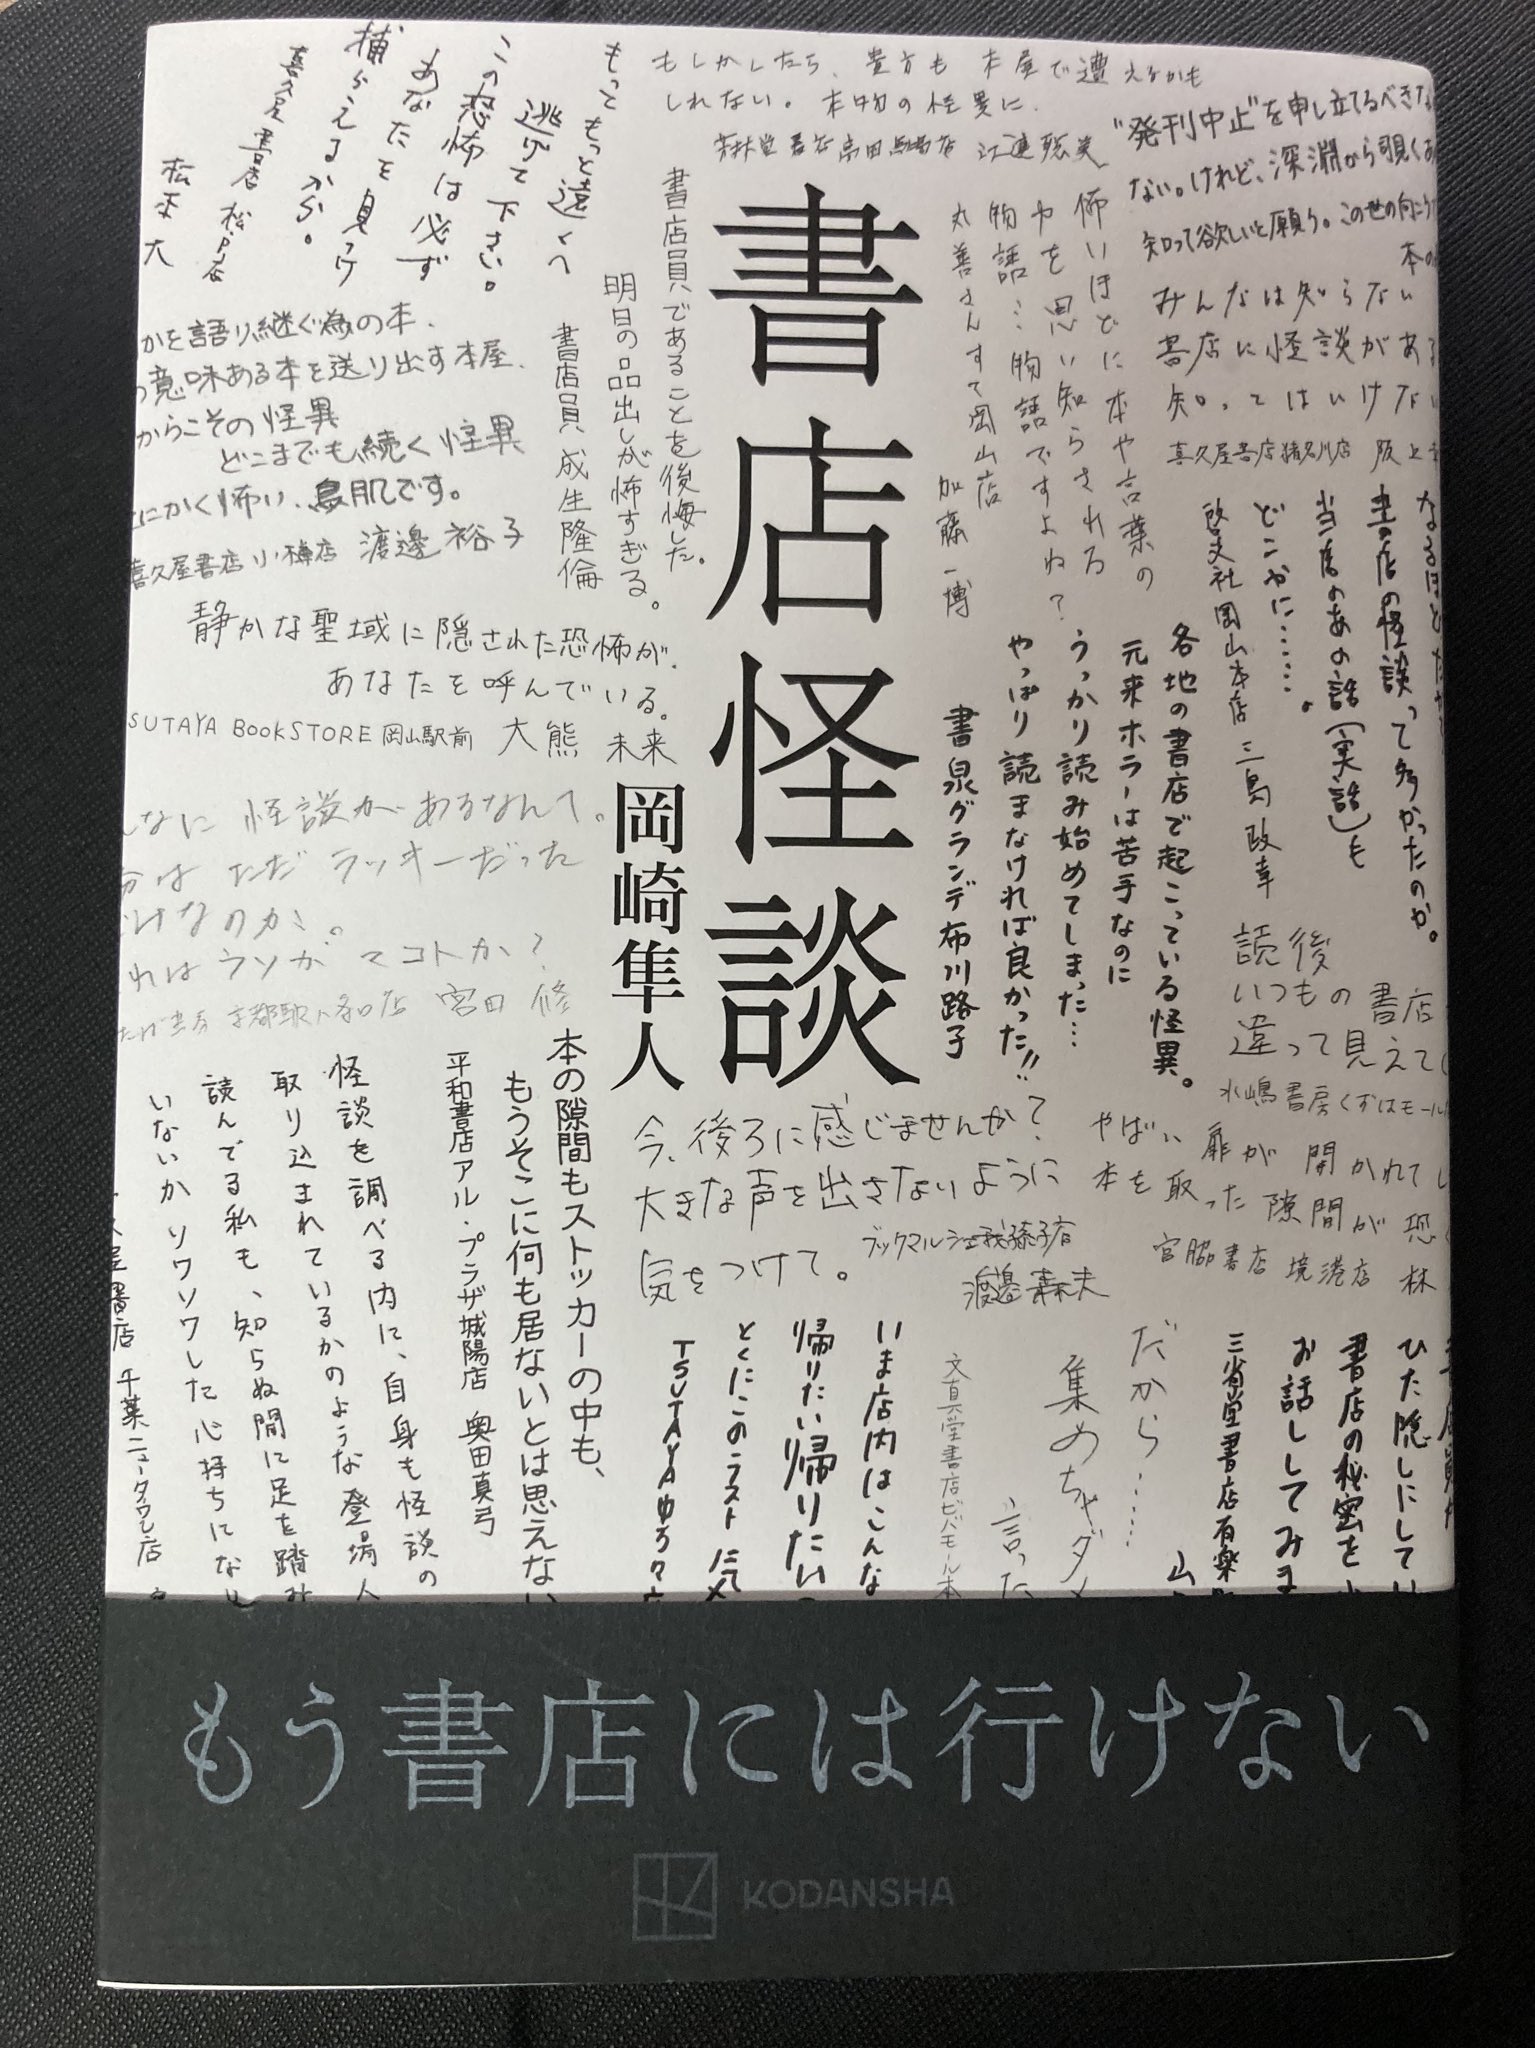 書店怪談
岡崎隼人
もしかしたら、貴方も本屋で遭えるかも
しれない。本物の怪異に、
芳林堂書店高田馬場店 江連聡美
"発刊中止"を申し立てるべきな
ない。けれど、深淵から覗くあ
知って欲しいと願う。この世の向こう
本の
みんなは知らない
書店に怪談がある
知ってはいけない
喜久屋書店猪名川店 阪上
もっともっと遠くへ
逃げて下さい。
この恐怖は必ず
あなたを見つけ
捕らえるから。
喜久屋書店 松戸店
松本大
書店員であることを後悔した。
明日の品出しが怖すぎる。
書店員 成生隆倫
怖いほどに本や言葉の
力を思い知らされる
物語…物語ですよね?
丸善さんすて岡山店
加藤一博
かを語り継ぐ為の本、
の意味ある本を送り出す本屋、
からこその怪異
どこまでも続く怪異
にかく怖い、鳥肌です。
喜久屋書店小樽店 渡邊裕子
静かな聖域に隠された恐怖が、
あなたを呼んでいる。
SUTAYA BOOKSTORE 岡山駅前 大熊 未来
なるほど
書店の怪談って多かったのか。
当店のあの話(実話)も
どこかに……。
啓文社岡山本店 三島政幸
各地の書店で起こっている怪異。
元来ホラーは苦手なのに
うっかり読み始めてしまった…
やっぱり読まなければ良かった!!
書泉グランデ 布川路子
んなに怪談があるなんて。
分はただラッキーだった
だけなのか。
れはウソかマコトか?
宮田 修
読後
いつもの書店
違って見えて
水嶋書房くずはモール
本の隙間もストッカーの中も、
もうそこに何も居ないとは思えない
平和書店アル・プラザ城陽店 奥田真弓
怪談を調べる内に、自身も怪談の
取り込まれているかのような登場人
読んでる私も、知らぬ間に足を踏み
いないかソワソワした心持ちになり
屋書店 千葉ニュータウン店
今、後ろに感じませんか?
大きな声を出さないように
気をつけて。
ブックマルシェ我孫子店
渡邊森夫
やばい、扉が開かれてし
本を取った隙間が恐
宮脇書店 境港店 林
いま店内はこんな
帰りたい帰りたい
とくにこのラストにて
TSUTAYAゆう
だから……
集めちゃダメ
言った
文真堂書店ビバモール本
ひた隠しにしてい
書店の秘密を
お話ししてみま
三省堂書店有楽
山
もう書店には行けない
KODANSHA